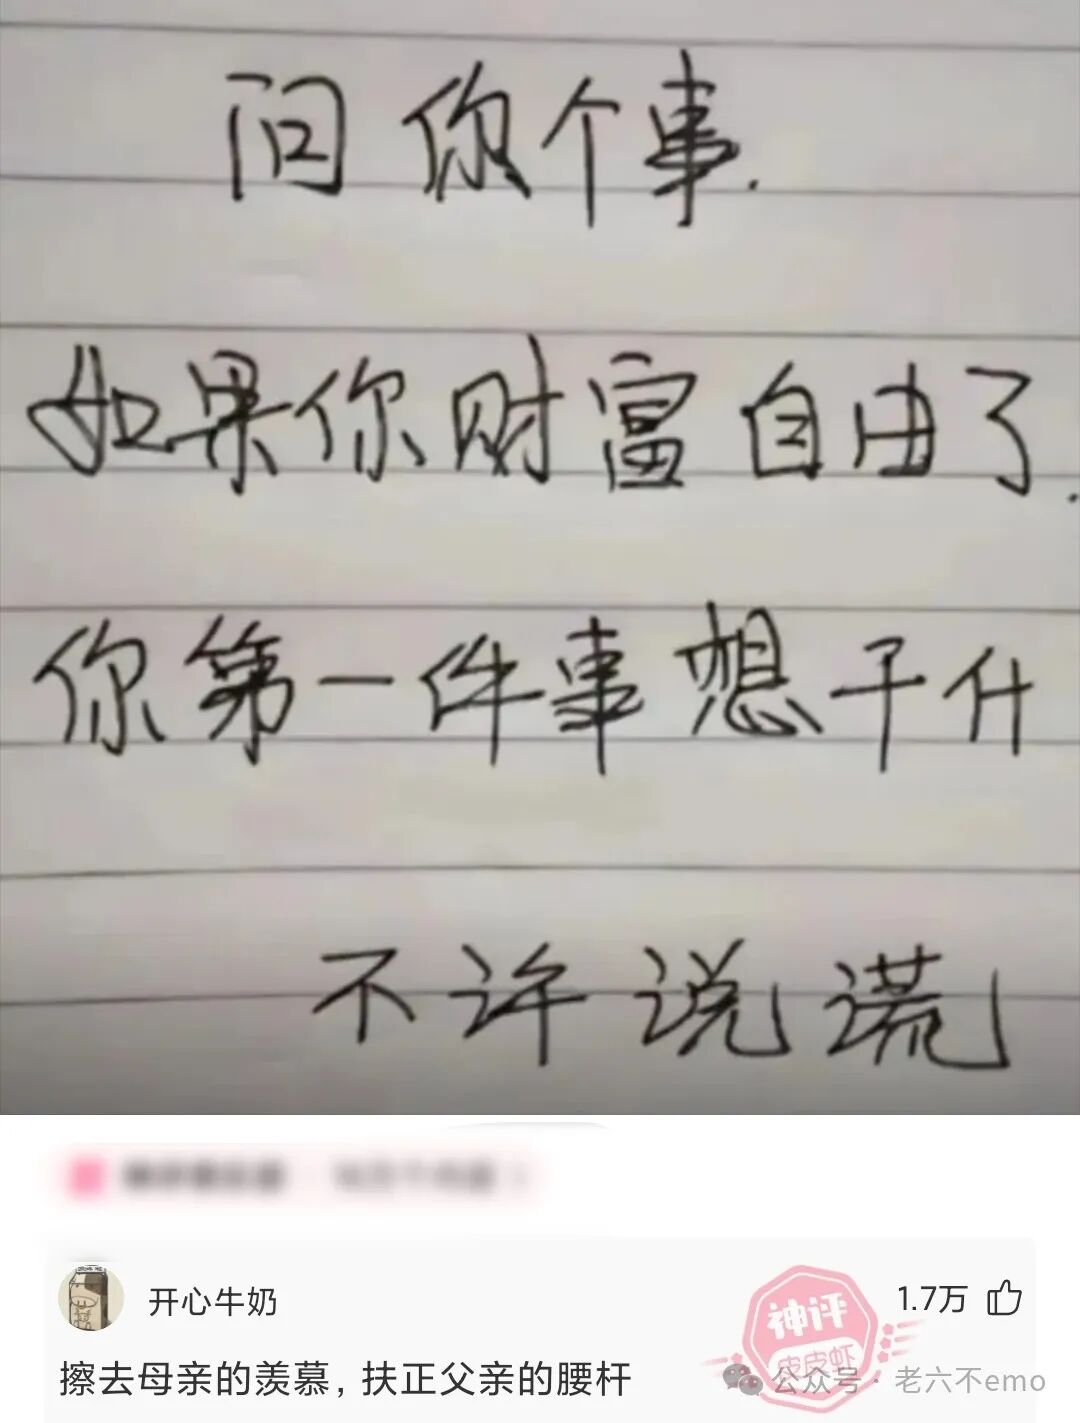 问你个事.
如果你财富自由了.
你第一件事想干什
不许说谎
开心牛奶
1.7万
擦去母亲的羡慕，扶正父亲的腰杆
神评
皮皮虾
公众号·老六不emo